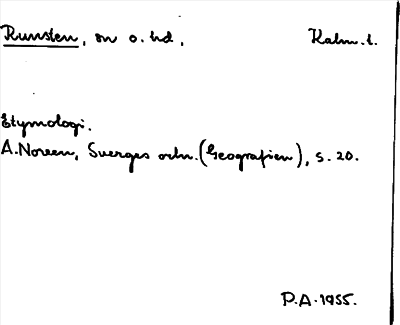 Runsten, sn o. hd, Kalm. l.
Etymologi.
A. Noreen, Sveriges ortn. (Geografien), s. 20.
P.A. 1955.